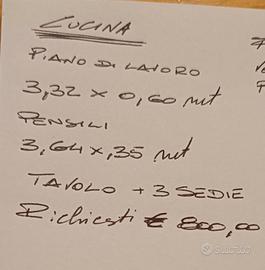 CUCINA
PIANO DI LAVORO
3,32 x 0,60 mt
PENSILI
3,64 x ,35 mt
TAVOLO + 3 SEDIE
Richiesti € 800,00
subito